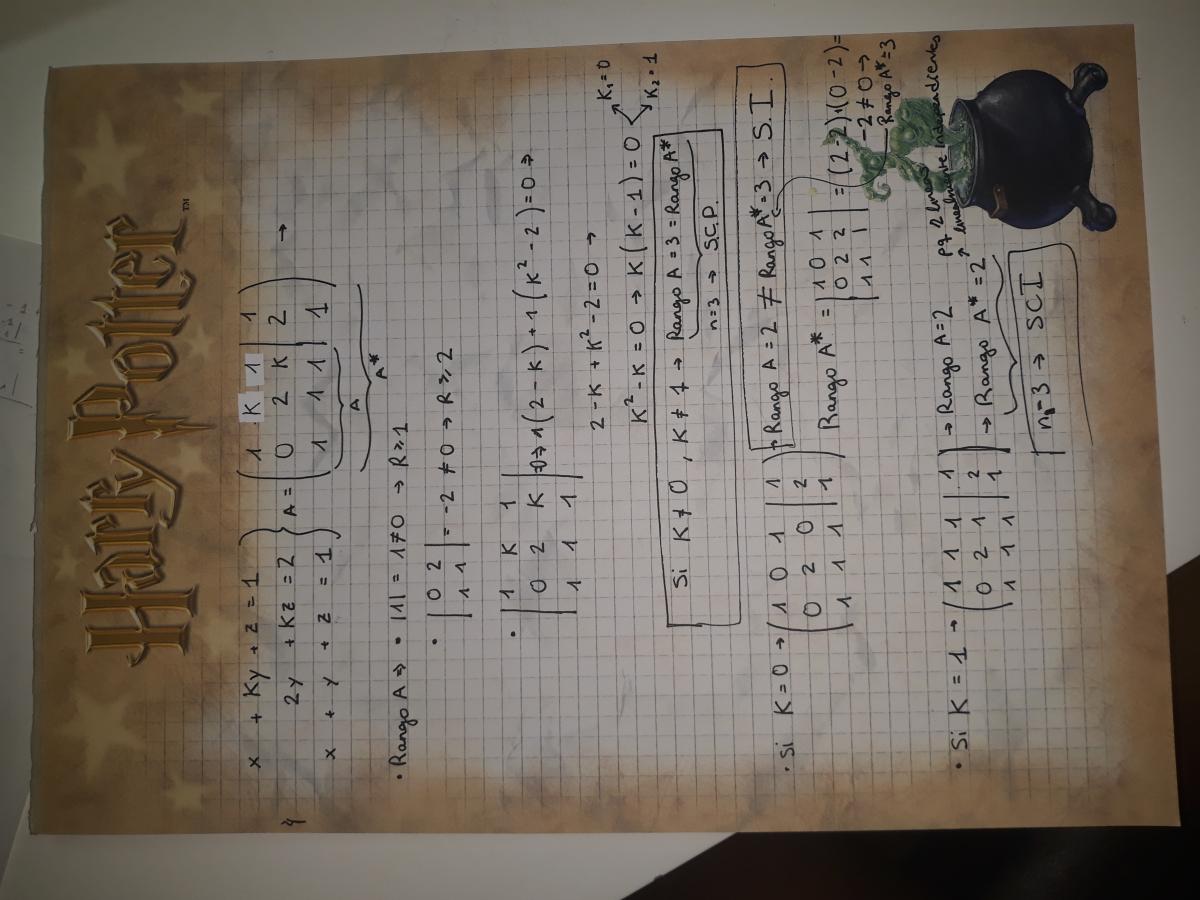 Harry Potter™
4
x + Ky + z = 1
2y + Kz = 2
x + y + z = 1
A = ( 1 K 1 | 1 )
( 0 2 K | 2 ) →
( 1 1 1 | 1 )
A
A*
· Rango A ⇒ • |1| = 1 ≠ 0 → R ≥ 1
• | 0 2 |
| 1 1 | = -2 ≠ 0 → R ≥ 2
• | 1 K 1 |
| 0 2 K | = 0 ⇒ 1(2 - K) + 1(K² - 2) = 0 ⇒
| 1 1 1 |
2 - K + K² - 2 = 0 →
K² - K = 0 → K(K - 1) = 0
K₁ = 0
K₂ = 1
Si K ≠ 0, K ≠ 1 → Rango A = 3 = Rango A*
n=3 → S.C.P.
· Si K = 0 → ( 1 0 1 | 1 ) → Rango A = 2 ≠ Rango A* = 3 → S.I.
( 0 2 0 | 2 )
( 1 1 1 | 1 )
Rango A* = | 1 0 1 |
| 0 2 2 | = (2 - 2) + 1(0 - 2) =
| 1 1 1 |
-2 ≠ 0 →
Rango A* = 3
• Si K = 1 → ( 1 1 1 | 1 ) → Rango A = 2
( 0 2 1 | 2 ) → Rango A* = 2
( 1 1 1 | 1 )
pq 2 lineas
linealmente independientes
n = 3 → SCI